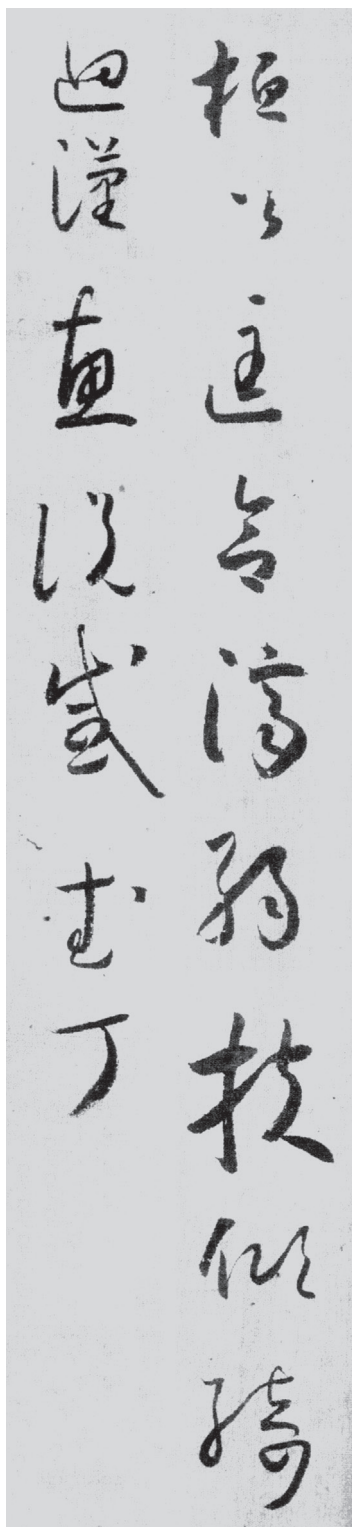 桓公匡合濟弱扶傾綺
迴漢惠說感武丁